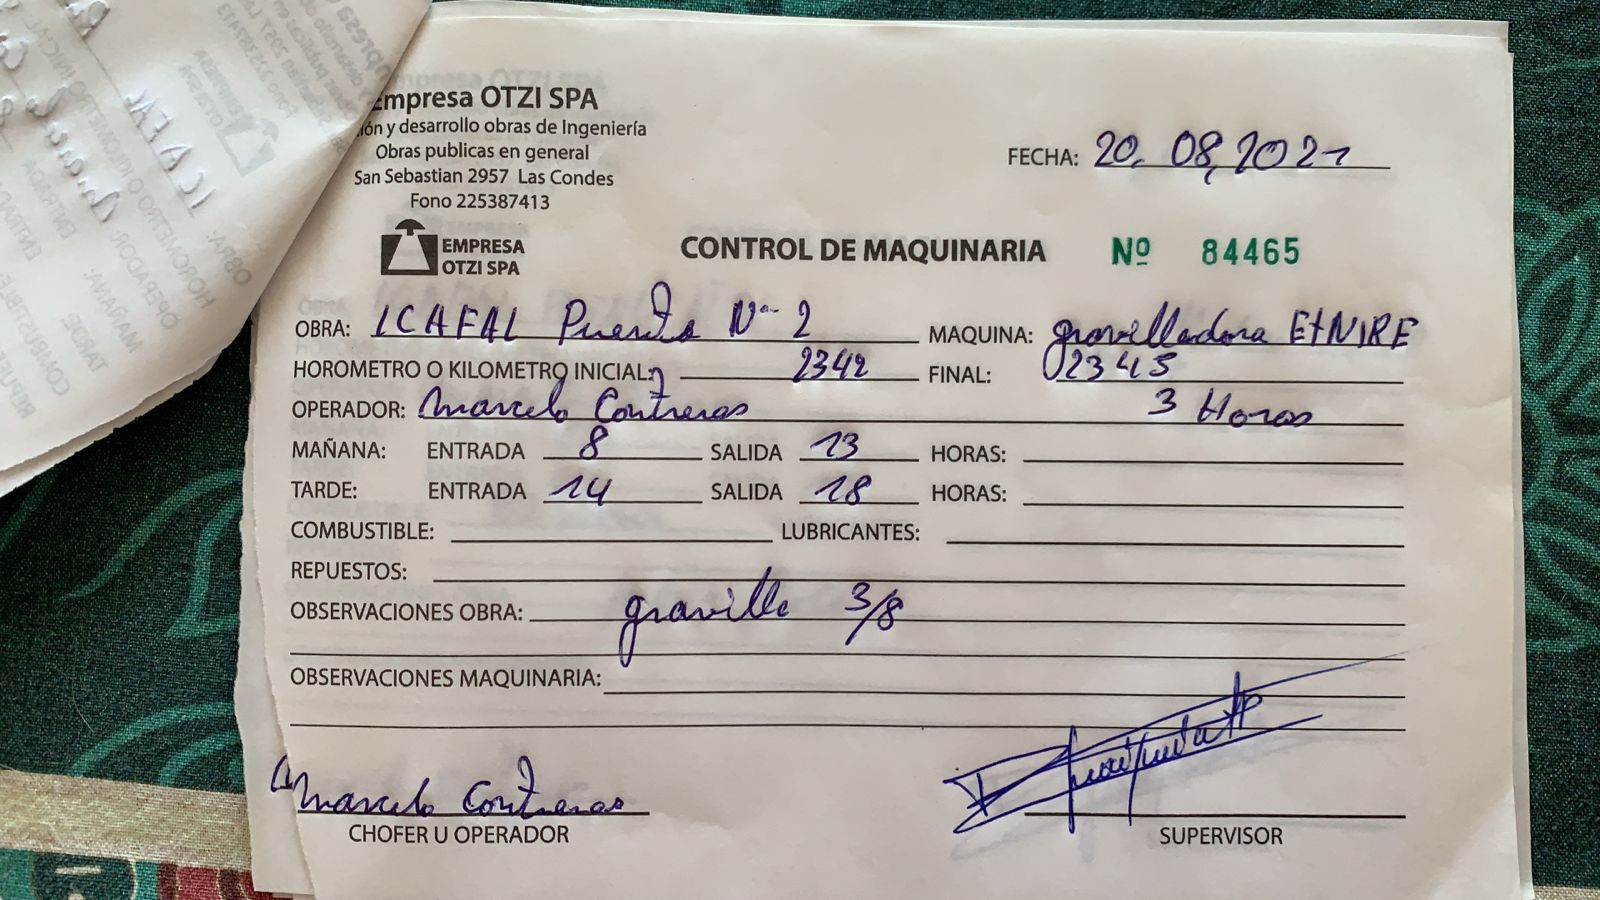 Empresa OTZI SPA
ión y desarrollo obras de Ingeniería
Obras publicas en general
San Sebastian 2957 Las Condes
Fono 225387413
FECHA: 20.08,2021
EMPRESA
OTZI SPA
CONTROL DE MAQUINARIA Nº 84465
OBRA: ICAFAL Puente Nº 2 MAQUINA: gravilladora ETNIRE
HOROMETRO O KILOMETRO INICIAL: 2342 FINAL: 02345
OPERADOR: Marcelo Contreras 3 Horas
MAÑANA: ENTRADA 8 SALIDA 13 HORAS:
TARDE: ENTRADA 14 SALIDA 18 HORAS:
COMBUSTIBLE: LUBRICANTES:
REPUESTOS:
OBSERVACIONES OBRA: gravilla 3/8
OBSERVACIONES MAQUINARIA:
Marcelo Contreras
CHOFER U OPERADOR SUPERVISOR